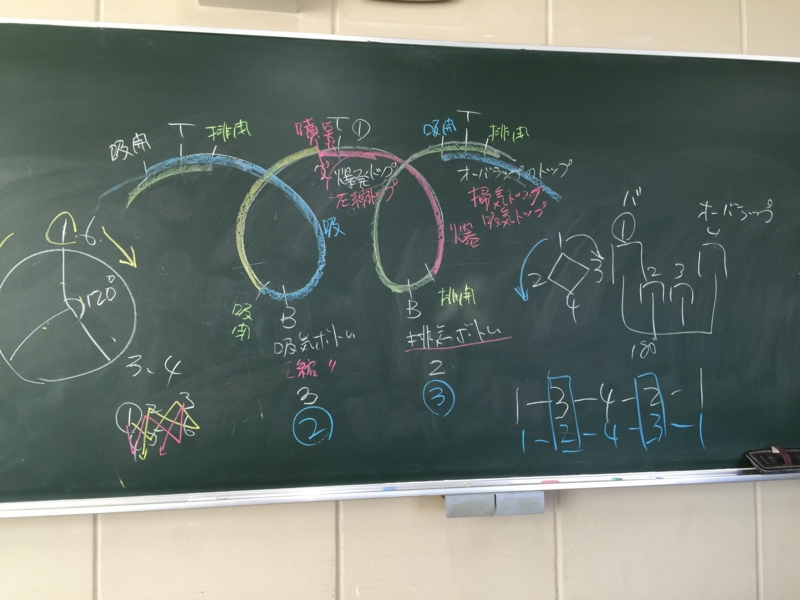 吸開
T
排閉
噴射
T
①
爆発トップ
圧縮トップ
吸開
T
排閉
オーバラップのトップ
掃気トップ
吸気トップ
1.6
120°
3、4
吸
吸閉
B
吸気ボトム
圧縮〃
3
②
爆
排開
B
排気ボトム
2
③
1
2
3
4
バ
①
2
3
オーバラップ
4
180°
1-3-4-2-1
1-2-4-3-1